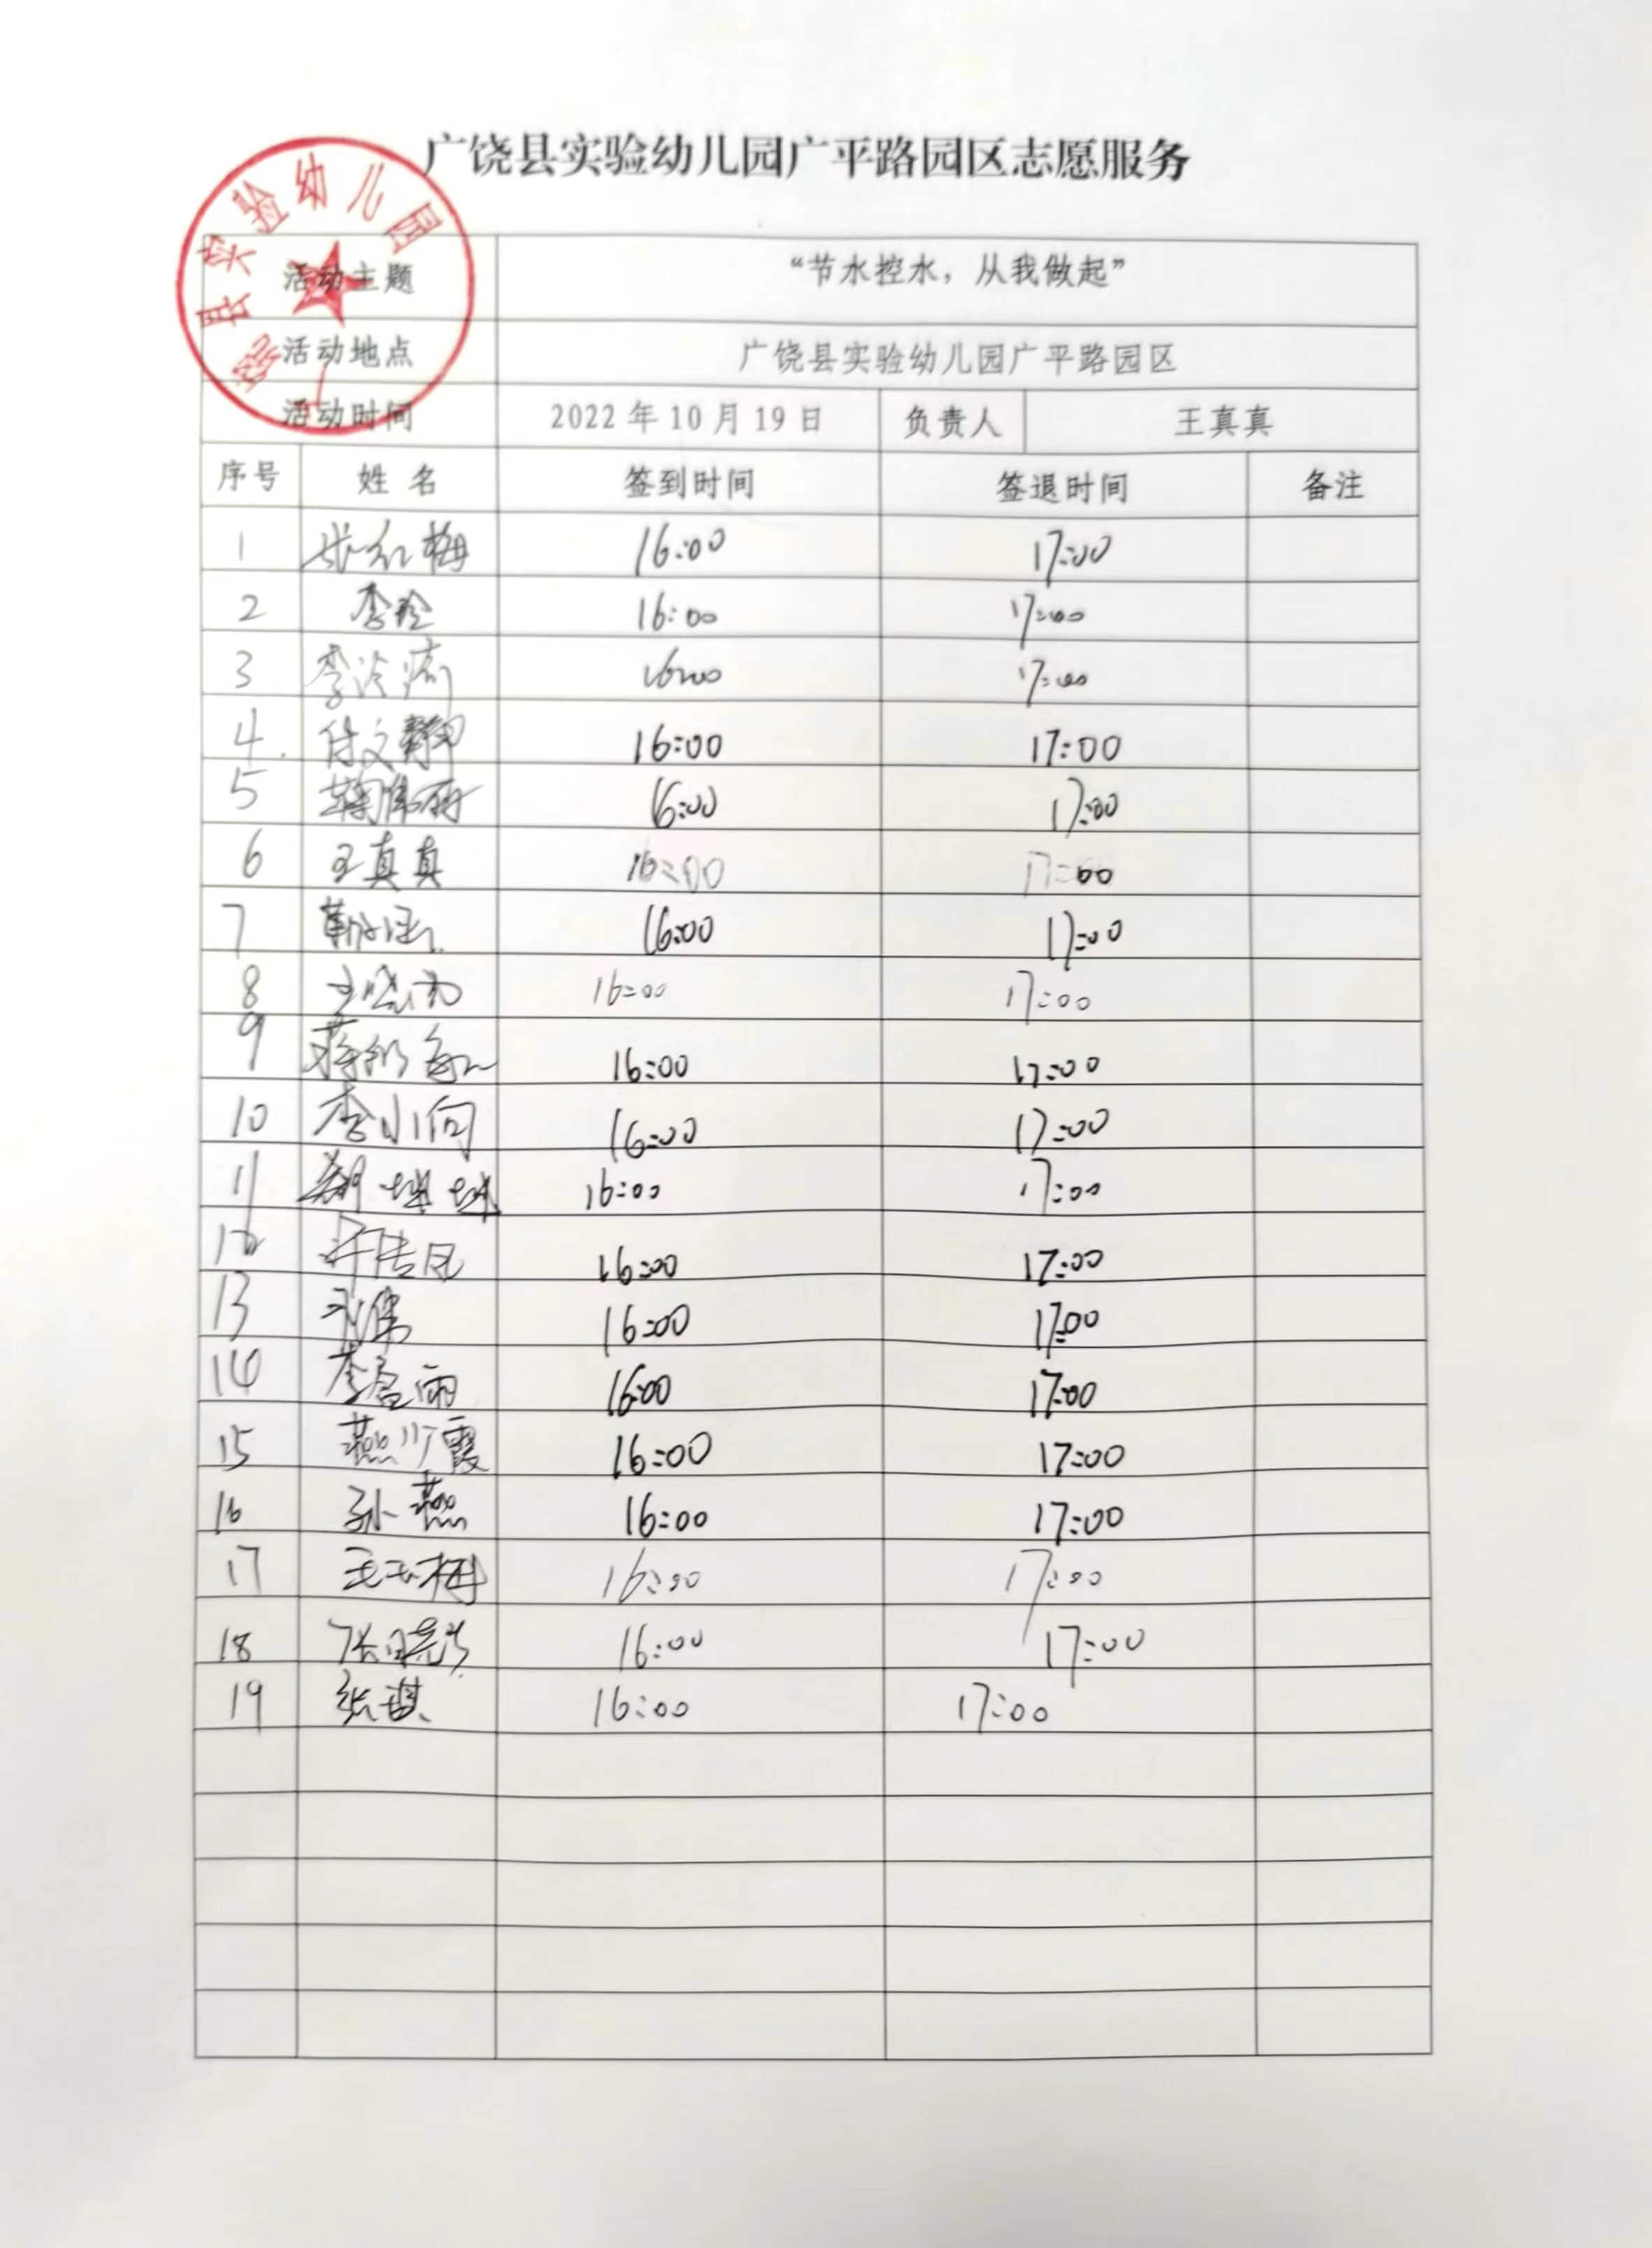 广饶县实验幼儿园广平路园区志愿服务
广饶县实验幼儿园
活动主题 “节水控水，从我做起”
活动地点 广饶县实验幼儿园广平路园区
活动时间 2022年10月19日 负责人 王真真
序号 姓名 签到时间 签退时间 备注
1 张红梅 16:00 17:00
2 李玲 16:00 17:00
3 李 16:00 17:00
4 付文静 16:00 17:00
5 16:00 17:00
6 王真真 16:00 17:00
7 16:00 17:00
8 16:00 17:00
9 16:00 17:00
10 李小向 16:00 17:00
11 16:00 17:00
12 16:00 17:00
13 16:00 17:00
14 李盈雨 16:00 17:00
15 燕广霞 16:00 17:00
16 孙燕 16:00 17:00
17 王玉梅 16:00 17:00
18 张晓 16:00 17:00
19 张琪 16:00 17:00